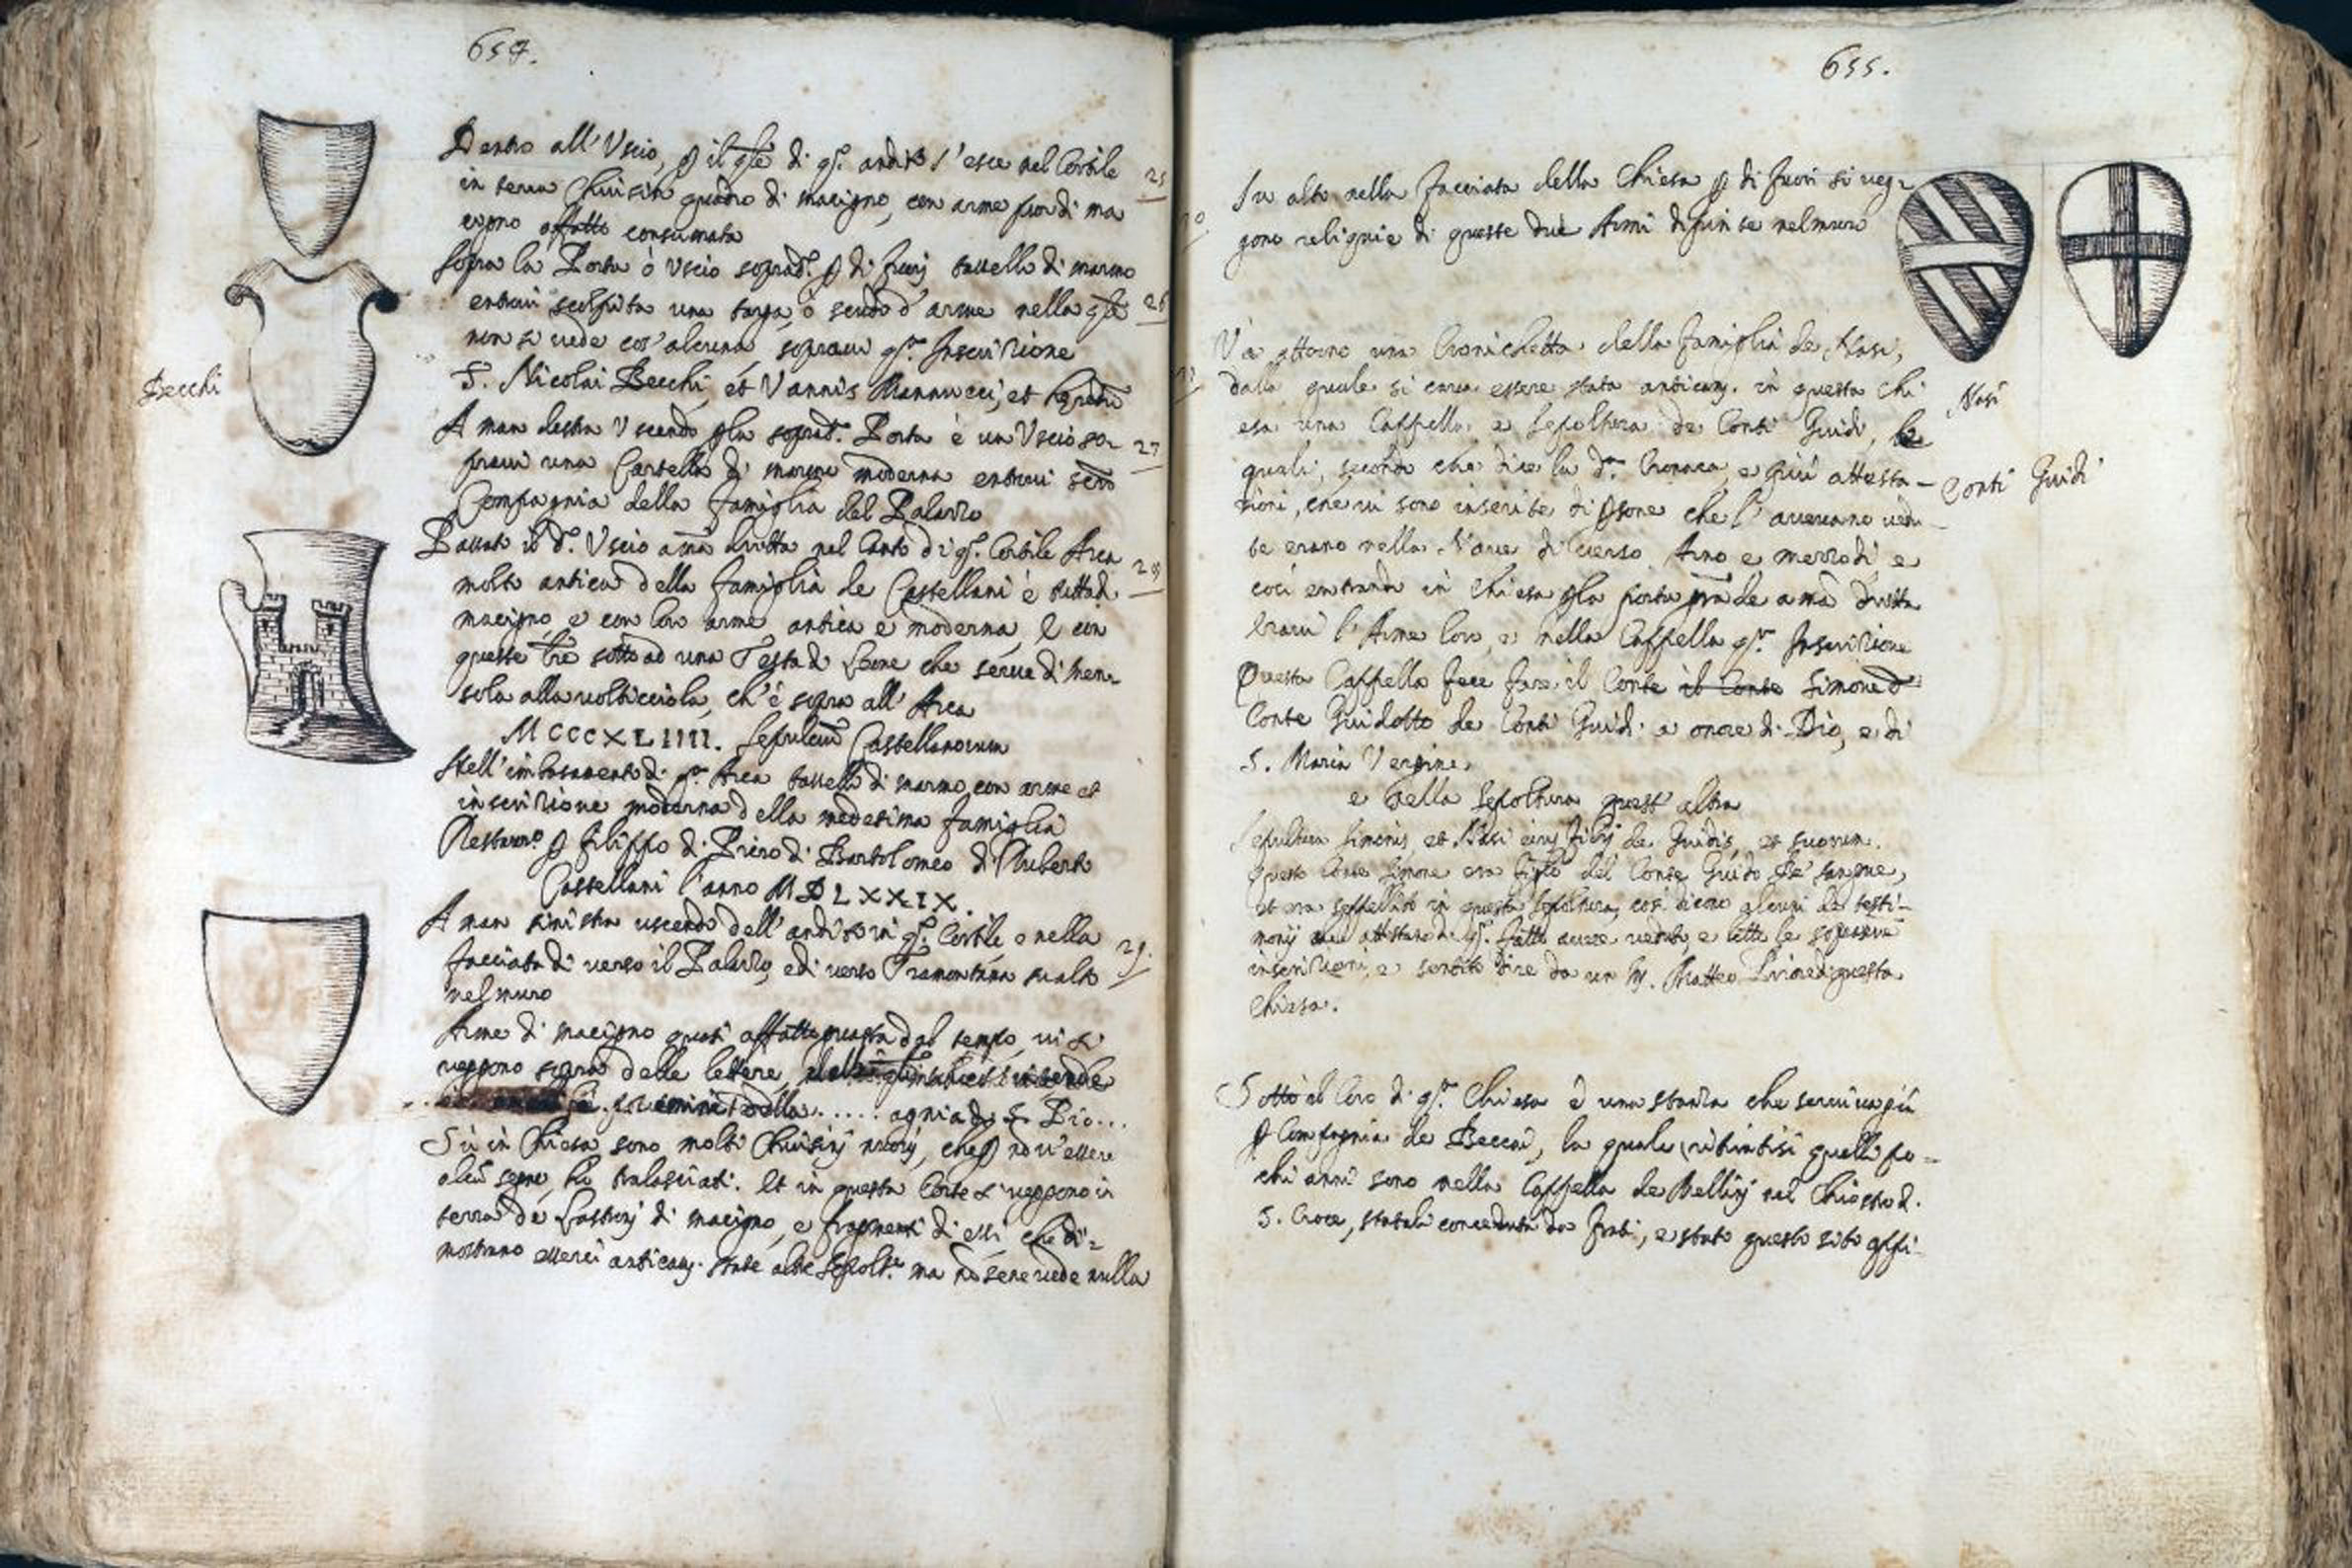 654.
Dentro all'Uscio, p il qle di q.º andito s'esce nel Cortile
25
in terra Chiusin quadro di macigno, con arme pur di ma
cigno affatto consumata
Sopra la Porta ò Uscio soprad.º p di fuorj tassello di marmo
entrovi scolpita una targa, ò scudo d'arme nella qle
26
non si vede cos'alcuna, sopravi q.ª Inscrizione
Becchi
S. Nicolai Becchi, et Vannis Mannucci, et
A man destra Uscendo pla soprad.ª Porta è un Uscio so-
27
pravi una Cartella di marmo moderna entrovi
Compagnia della famiglia del Palazzo
Passato il d.º Uscio a mã dritta nel Canto di q.º Cortile Arca
28
molto antica della famiglia de Castellani è tutta di
macigno e con loro arme antica e moderna, e con
queste tre sotto ad una Testa di Leone che serve di men-
sola alla volticciola, ch'è sopra all'Arca
MCCCXLIIII. Castellanorum
Nell'imbasamento di q.ª Arca tassello di marmo con arme et
inscrizione moderna della medesima famiglia
p Filippo di Piero di Bartolomeo d'Uberto
Castellani l'anno MDLXXIX.
A man sinistra uscendo dell'andito in q.º Cortile, o nella
29.
facciata di verso il Palazzo, e di verso Tramontana su alto
nel muro
Arme di macigno quasi affatto guasta dal tempo, vi si
veggono sopra delle lettere,
della ..... agnia di S. Pio...
Sù in Chiesa sono molti Chiusinj nuovj, che p nõ v'essere
alcũ segno, ho tralasciati. Et in questa Corte si veggono in
terra de Lastronj di macigno, e fragmenti di essi che di=
mostrano esserci anticam. state altre Sepolt.ᵉ ma nõ se ne vede nulla
655.
Su alto nella facciata della Chiesa p di fuori si veg=
30
gono reliquie di queste due Armi dipinte nel muro
Và attorno una Cronichetta della famiglia de Nasi,
dalla quale si cava essere stata anticam. in questa Chi
Nasi
esa una Cappella, e Sepoltura de Conti Guidi, le
quali, secondo che dice la d.ª Cronaca, e più attesta-
Conti Guidi
zioni, che vi sono inserite di psone che l'avevano vedu
te erano nella Nave di verso Arno e
così entrando in Chiesa pla porta grãde a mã dritta
l'Arme loro, e nella Cappella q.ª Inscrizione
Questa Cappella fece fare il Conte il Conte Simone d
Conte Guidotto de Conti Guidi a onore di Dio, e di
S. Maria Vergine,
e nella Sepoltura quest'altra
Sepultura Simonis et Nasi eius filij de Guidis, et suorum.
questo Conte Simone era figlo del Conte Guido
et era seppellito in questa Sepoltura, così dicono alcuni de testi-
monij attestano di q.º fatto avere veduto, e lette le
inscrizioni, e sentito dire da un M. Matteo Priore di questa
Chiesa.
Sotto al Coro di q.ª Chiesa è una stanza che serviva già
p Compagnia de Beccai, la quale (ritiratisi quelli po=
chi anni sono nella Cappella de Bellinj nel Chiostro di
S. Croce, statali conceduta da frati, e stato questo sito